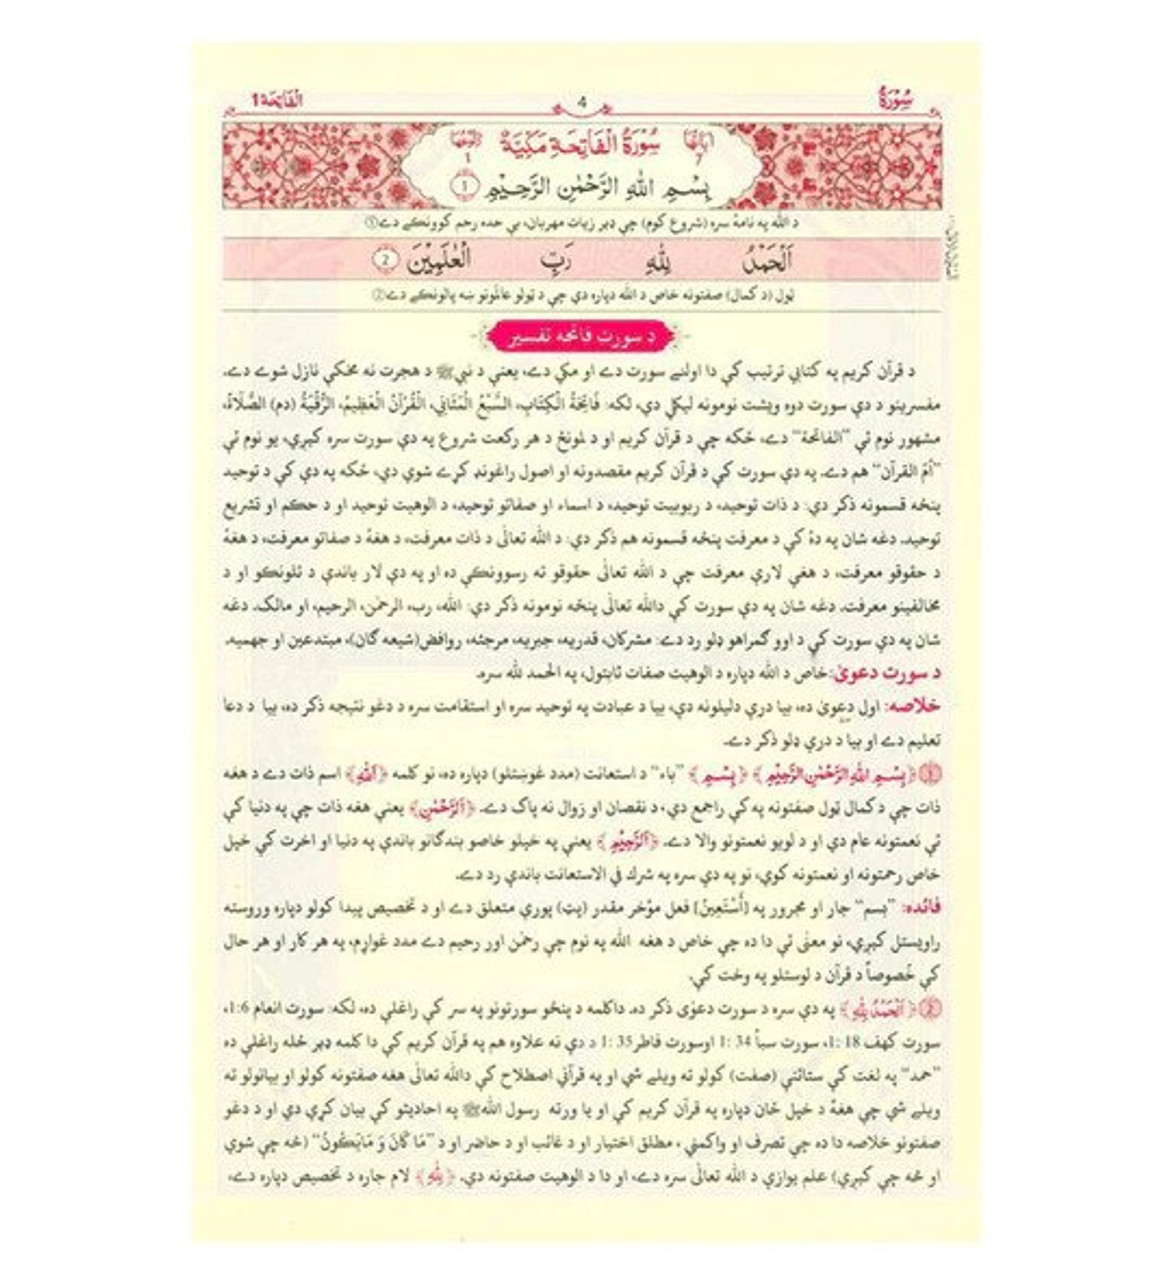 سُوْرَةُ 4 اَلْفَاتِحَة 1
اٰيَاتُهَا 7 سُوْرَةُ الْفَاتِحَةِ مَكِّيَّةٌ 1
بِسْمِ اللهِ الرَّحْمٰنِ الرَّحِيْمِ 1
د الله په نامهٔ سره (شروع کوم) چې ډېر زيات مهربان، بې حده رحم کوونکے دے①
اَلْحَمْدُ لِلّٰهِ رَبِّ الْعٰلَمِيْنَ 2
ټول (د کمال) صفتونه خاص د الله دپاره دي چې د ټولو عالمونو ښه پالونکے دے②
د سورت فاتحه تفسير
د قرآن کريم په کتابي ترتيب کې دا اولنے سورت دے او مکي دے، يعني د نبيﷺ د هجرت نه مخکې نازل شوے دے.
مفسرينو د دې سورت دوه ويشت نومونه ليکلي دي، لکه: فَاتِحَةُ الْكِتَابِ، السَّبْعُ الْمَثَانِي، الْقُرْآنُ الْعَظِيْمُ، الرُّقْيَةُ (دم) الصَّلَاةُ،
مشهور نوم ئې "الفاتحة" دے، ځکه چې د قرآن کريم او د لمونځ د هر رکعت شروع په دې سورت سره کېږي، يو نوم ئې
"أمّ القرآن" هم دے. په دې سورت کې د قرآن کريم مقصدونه او اصول راغونډ کړے شوي دي، ځکه په دې کې د توحيد
پنځه قسمونه ذکر دي: د ذات توحيد، د ربوبيت توحيد، د اسماء او صفاتو توحيد، د الوهيت توحيد او د حکم او تشريع
توحيد. دغه شان په دهٔ کې د معرفت پنځه قسمونه هم ذکر دي: د الله تعالٰی د ذات معرفت، د هغهٔ د صفاتو معرفت، د هغهٔ
د حقوقو معرفت، د هغې لارې معرفت چې د الله تعالٰی حقوقو ته رسوونکې ده او په دې لار باندې د تلونکو او د
مخالفينو معرفت. دغه شان په دې سورت کې دالله تعالٰی پنځه نومونه ذکر دي: الله، رب، الرحمٰن، الرحيم، او مالک. دغه
شان په دې سورت کې د اوو ګمراهو ډلو رد دے: مشرکان، قدريه، جبريه، مرجئه، روافض(شيعه ګان)، مبتدعين او جهميه.
د سورت دعوٰی:خاص د الله دپاره د الوهيت صفات ثابتول، په الحمد لله سره.
خلاصه: اول دعوٰی ده، بيا درې دليلونه دي، بيا د عبادت په توحيد سره او استقامت سره د دغو نتيجه ذکر ده، بيا د دعا
تعليم دے او بيا د درې ډلو ذکر دے.
1 ﴿بِسْمِ اللهِ الرَّحْمٰنِ الرَّحِيْمِ﴾ ﴿بِسْمِ﴾ "باء" د استعانت (مدد غوښتلو) دپاره ده، نو کلمه ﴿اَللهِ﴾ اسم ذات دے د هغه
ذات چې د کمال ټول صفتونه په کې راجمع دي، د نقصان او زوال نه پاک دے. ﴿اَلرَّحْمٰنِ﴾ يعني هغه ذات چې په دنيا کې
ئې نعمتونه عام دي او د لويو نعمتونو والا دے. ﴿اَلرَّحِيْمِ﴾ يعنې په خپلو خاصو بندګانو باندې په دنيا او اخرت کې خپل
خاص رحمتونه او نعمتونه کوي، نو په دې سره په شرك في الاستعانت باندې رد دے.
فائده: "بسم" جار او مجرور په [أَسْتَعِيْنُ] فعل مؤخر مقدر (پټ) پورې متعلق دے او د تخصيص پيدا کولو دپاره وروسته
راوړستل کېږي، نو معنٰی ئې دا ده چې خاص د هغه الله په نوم چې رحمٰن اور رحيم دے مدد غواړم، په هر کار او هر حال
کې خُصوصاً د قرآن د لوستلو په وخت کې.
2 ﴿اَلْحَمْدُ لِلّٰهِ﴾ په دې سره د سورت دعوٰی ذکر ده. داکلمه د پنځو سورتونو په سر کې راغلې ده، لکه: سورت انعام 1:6،
سورت کهف 18 :1، سورت سبأ 34 :1 اوسورت فاطر35 :1 د دې نه علاوه هم په قرآن کريم کې دا کلمه ډېر ځله راغلې ده
"حمد" په لغت کې ستائنې (صفت) کولو ته ويلے شي او په قرآني اصطلاح کې دالله تعالٰی هغه صفتونه کولو او بيانولو ته
ويلے شي چې هغهٔ د خپل ځان دپاره په قرآن کريم کې او يا ورته رسول اللهﷺ په احاديثو کې بيان کړي دي او د دغو
صفتونو خلاصه دا ده چې تصرف او واکمني، مطلق اختيار او د غائب او د حاضر او د "مَا كَانَ وَ مَايَكُوْنُ" (څه چې شوي
او څه چې کېږي) علم يوازې د الله تعالٰی سره دے، او دا د الوهيت صفتونه دي. ﴿لِلّٰهِ﴾ لام جاره د تخصيص دپاره دے،